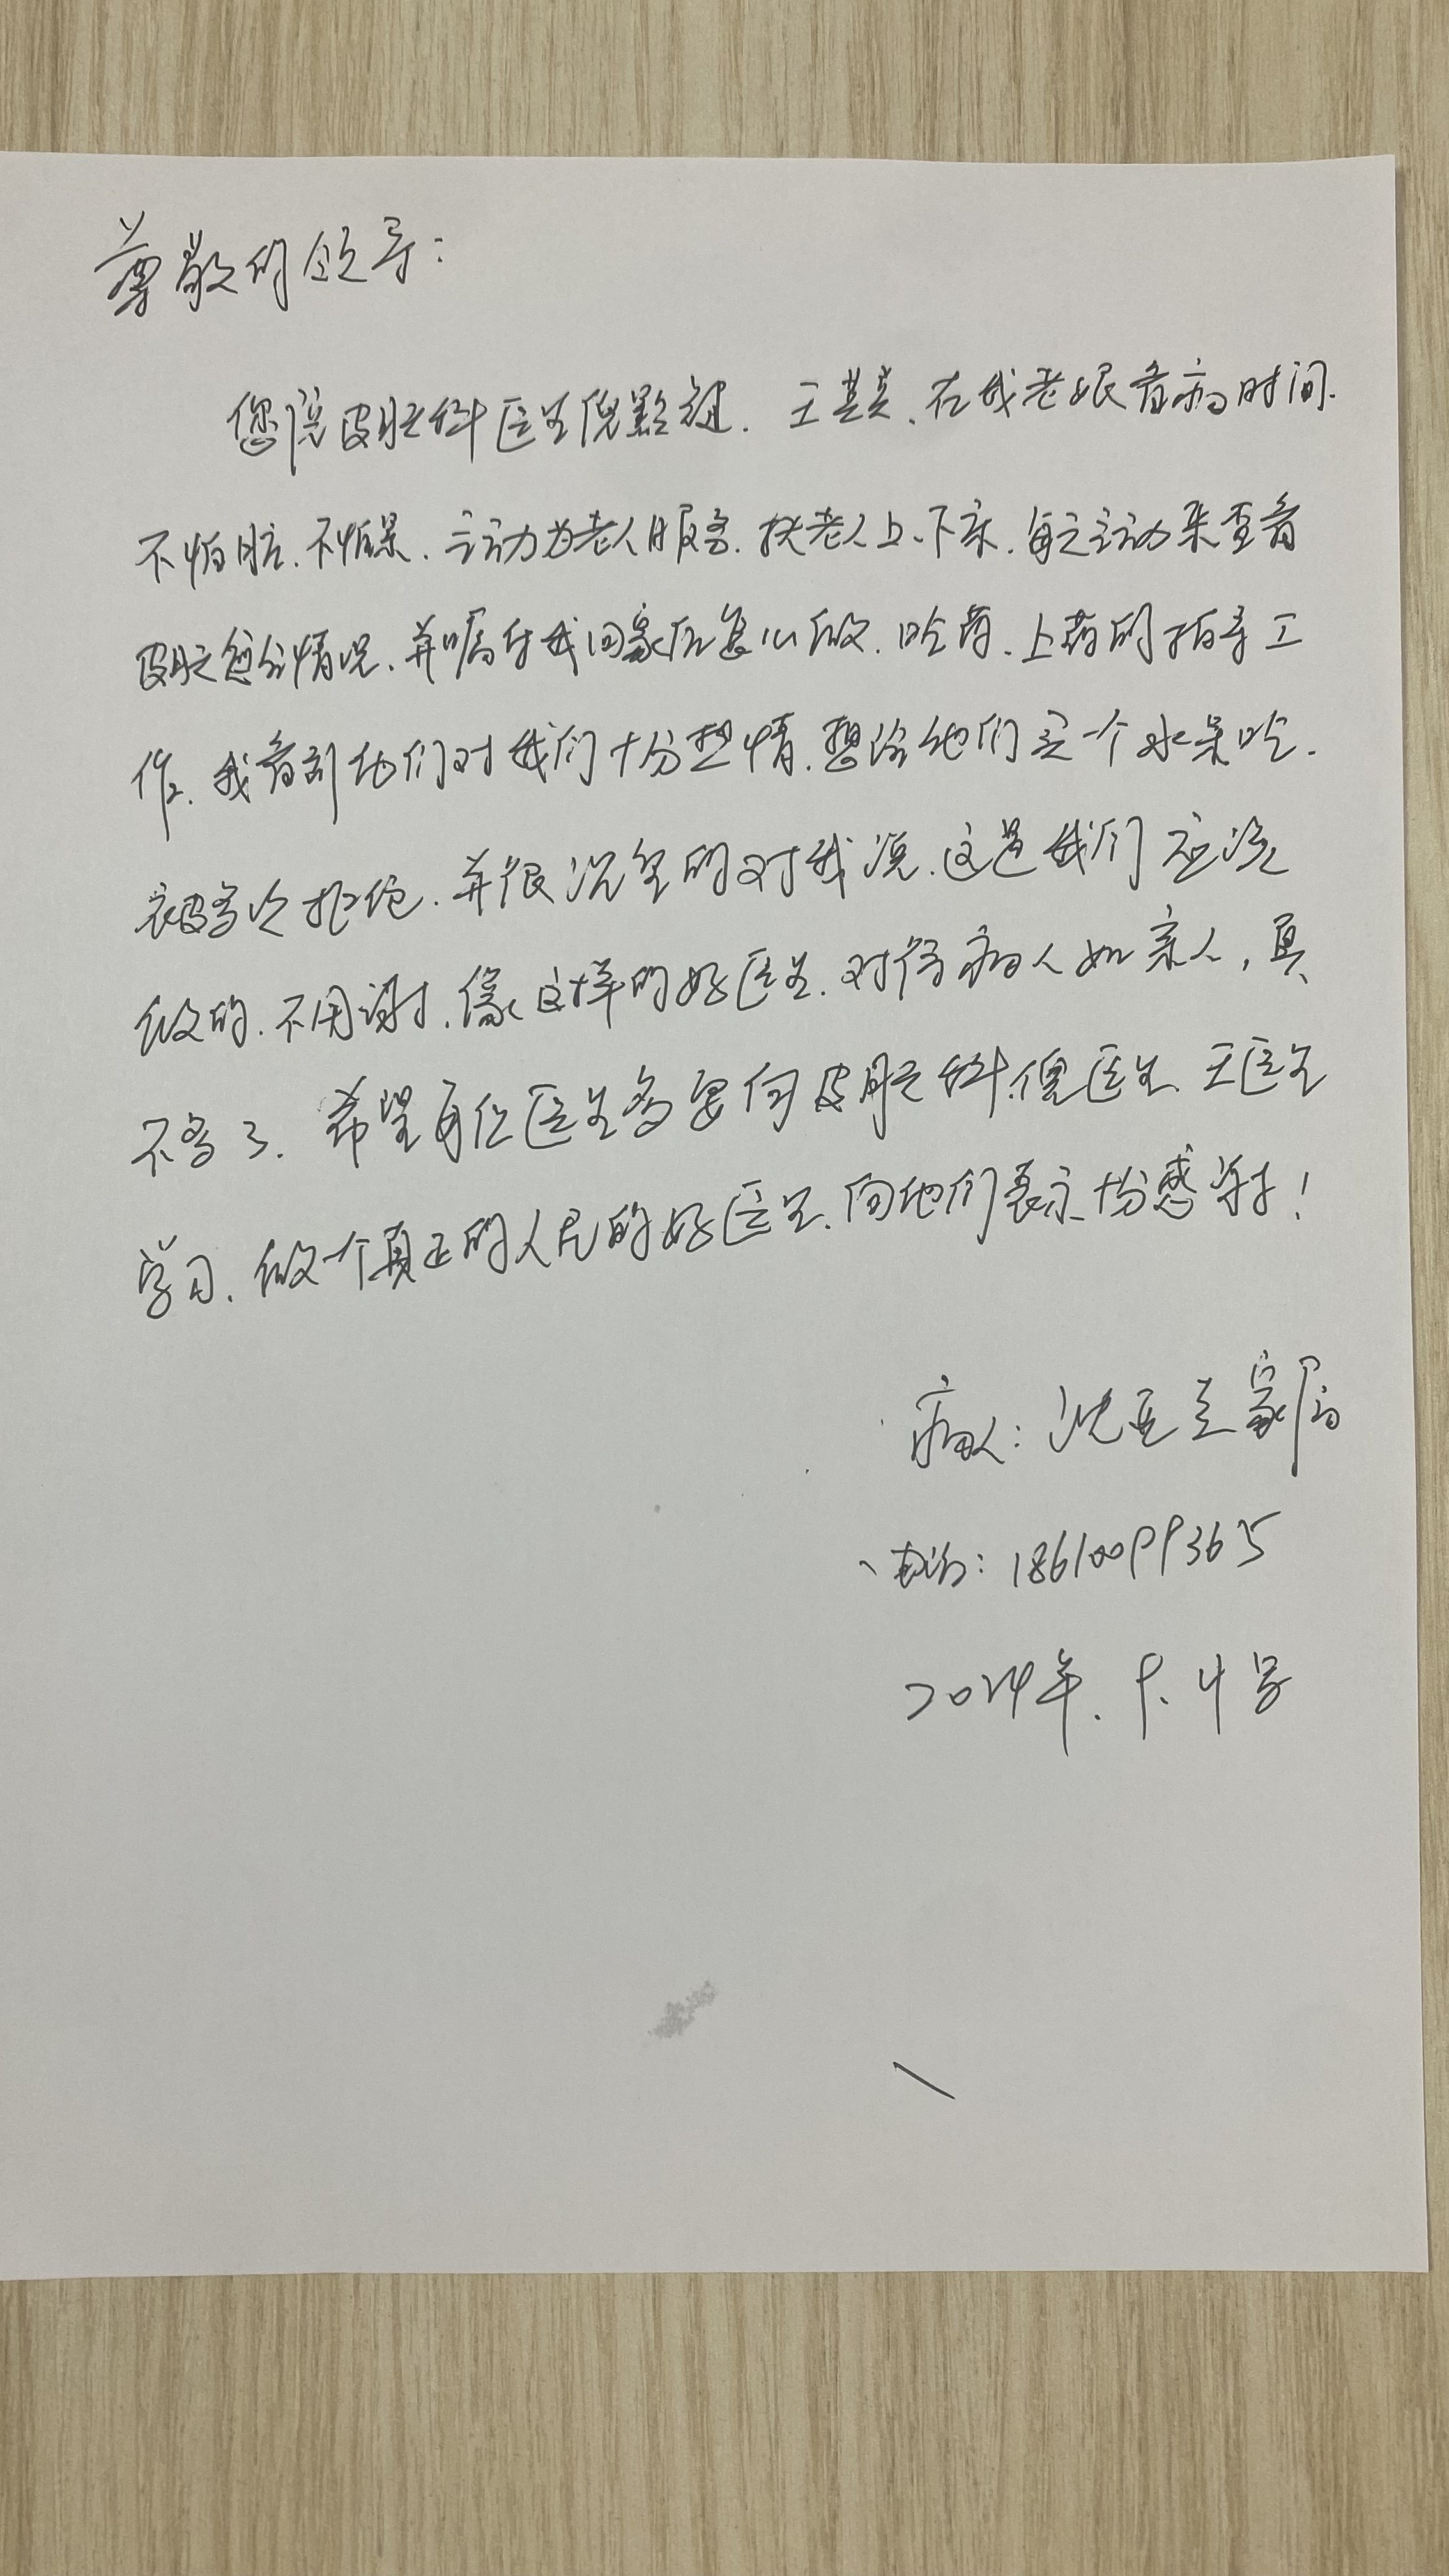 尊敬的领导：
您院皮肤科医生倪黔延、王其炎、在我老娘看病时间.
不怕脏、不怕累、主动为老人服务、扶老人上、下床、每天主动来查看
皮肤愈合情况、并嘱付我回家后怎么做、吃药、上药的指导工
作、我看到他们对我们十分热情、想给他们买一个水果吃.
被多次拒绝、并很沉重的对我说、这是我们应该
做的、不用谢、像这样的好医生、对待病人如亲人，真
不多了、希望每位医生多要向皮肤科倪医生、王医生
学习、做一个真正的人民的好医生、向他们表示十分感谢！
病人：沈玉兰家属
电话：18610099365
2024年.9.4号